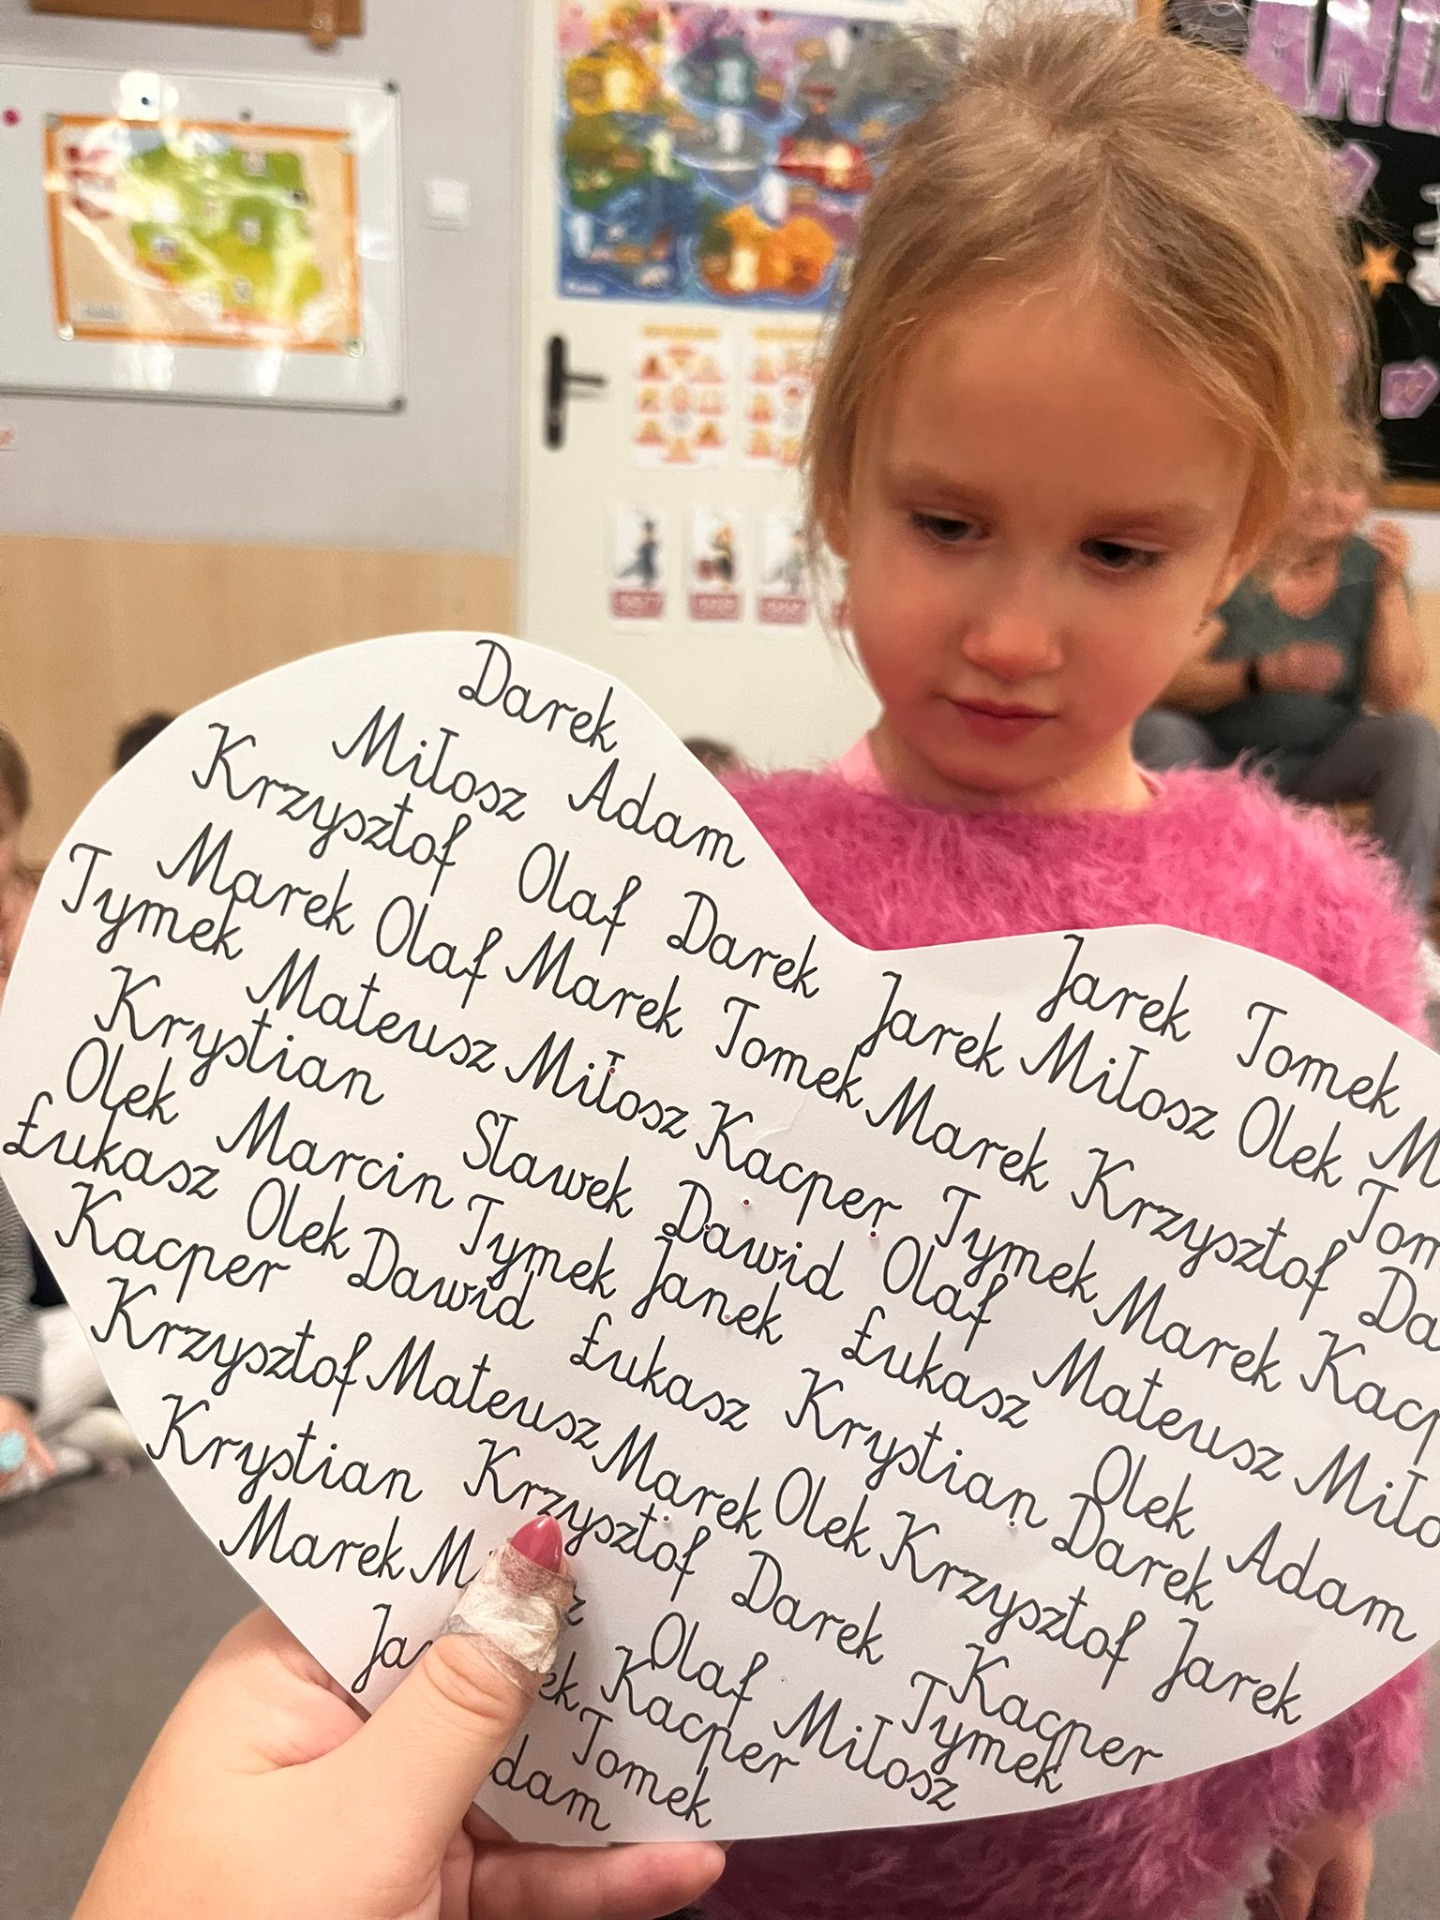 Darek
Miłosz Adam
Krzysztof Olaf Darek Jarek Tomek
Marek Olaf Marek Tomek Jarek Miłosz Olek
Tymek Mateusz Miłosz Kacper Marek Krzysztof
Krystian Sławek Dawid Olaf Tymek Marek
Olek Marcin Tymek Janek Łukasz Mateusz
Łukasz Olek Dawid Łukasz Krystian Olek Adam
Kacper Mateusz Marek Olek Krzysztof Darek Jarek
Krzysztof
Krystian Krzysztof Darek Kacper
Marek Olaf Miłosz Tymek
Kacper
Tomek